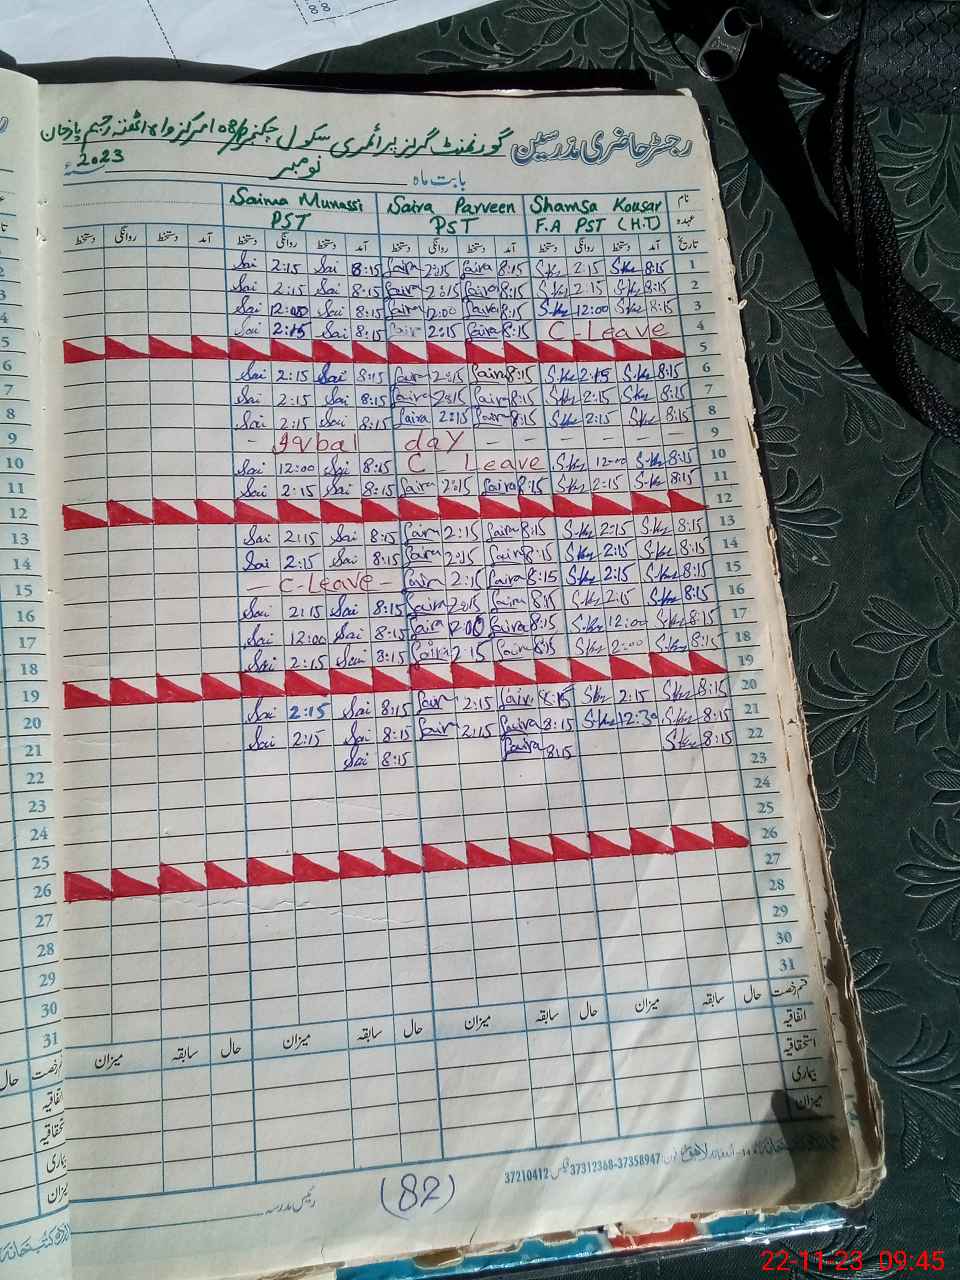 رجسٹر حاضری مدرسین
گورنمنٹ گرلز پرائمری سکول
رحیم یارخان
بابت ماہ نومبر 2023
نام Shamsa Kousar Saira Parveen Saima Munassi
عہدہ F.A PST (H.T) PST PST
تاریخ آمد دستخط روانگی دستخط آمد دستخط روانگی دستخط آمد دستخط روانگی دستخط آمد دستخط روانگی دستخط
1 Sai 2:15 Sai 8:15 Saira 2:15 Saira 8:15 S.Kz 2:15 S.Kz 8:15
2 Sai 2:15 Sai 8:15 Saira 2:15 Saira 8:15 S.Kz 2:15 S.Kz 8:15
3 Sai 12:00 Sai 8:15 Saira 12:00 Saira 8:15 S.Kz 12:00 S.Kz 8:15
4 Sai 2:15 Sai 8:15 Saira 2:15 Saira 8:15 C-Leave
5
6 Sai 2:15 Sai 8:15 Saira 2:15 Saira 8:15 S.Kz 2:15 S.Kz 8:15
7 Sai 2:15 Sai 8:15 Saira 2:15 Saira 8:15 S.Kz 2:15 S.Kz 8:15
8 Sai 2:15 Sai 8:15 Saira 2:15 Saira 8:15 S.Kz 2:15 S.Kz 8:15
9 - Iqbal day - - - - - -
10 Sai 12:00 Sai 8:15 C - Leave S.Kz 12:00 S.Kz 8:15
11 Sai 2:15 Sai 8:15 Saira 2:15 Saira 8:15 S.Kz 2:15 S.Kz 8:15
12
13 Sai 2:15 Sai 8:15 Saira 2:15 Saira 8:15 S.Kz 2:15 S.Kz 8:15
14 Sai 2:15 Sai 8:15 Saira 2:15 Saira 8:15 S.Kz 2:15 S.Kz 8:15
15 - C-Leave - Saira 2:15 Saira 8:15 S.Kz 2:15 S.Kz 8:15
16 Sai 2:15 Sai 8:15 Saira 2:15 Saira 8:15 S.Kz 2:15 S.Kz 8:15
17 Sai 12:00 Sai 8:15 Saira Saira 8:15 S.Kz 12:00 S.Kz 8:15
18 Sai 2:15 Sai 8:15 Saira 2:15 Saira 8:15 S.Kz 2:00 S.Kz 8:15
19
20 Sai 2:15 Sai 8:15 Saira 2:15 Saira 8:15 S.Kz 2:15 S.Kz 8:15
21 Sai 2:15 Sai 8:15 Saira 2:15 Saira 8:15 S.Kz 12:30 S.Kz 8:15
22 Sai 8:15 Saira 8:15 S.Kz 8:15
23
24
25
26
27
28
29
30
31
قسم رخصت حال سابقہ میزان حال سابقہ میزان حال سابقہ میزان حال سابقہ میزان
اتفاقیہ
استحقاقیہ
بیماری
میزان
37312368-37358947 فیکس 37210412
رئیس مدرسہ
(82)
22-11-23 09:45